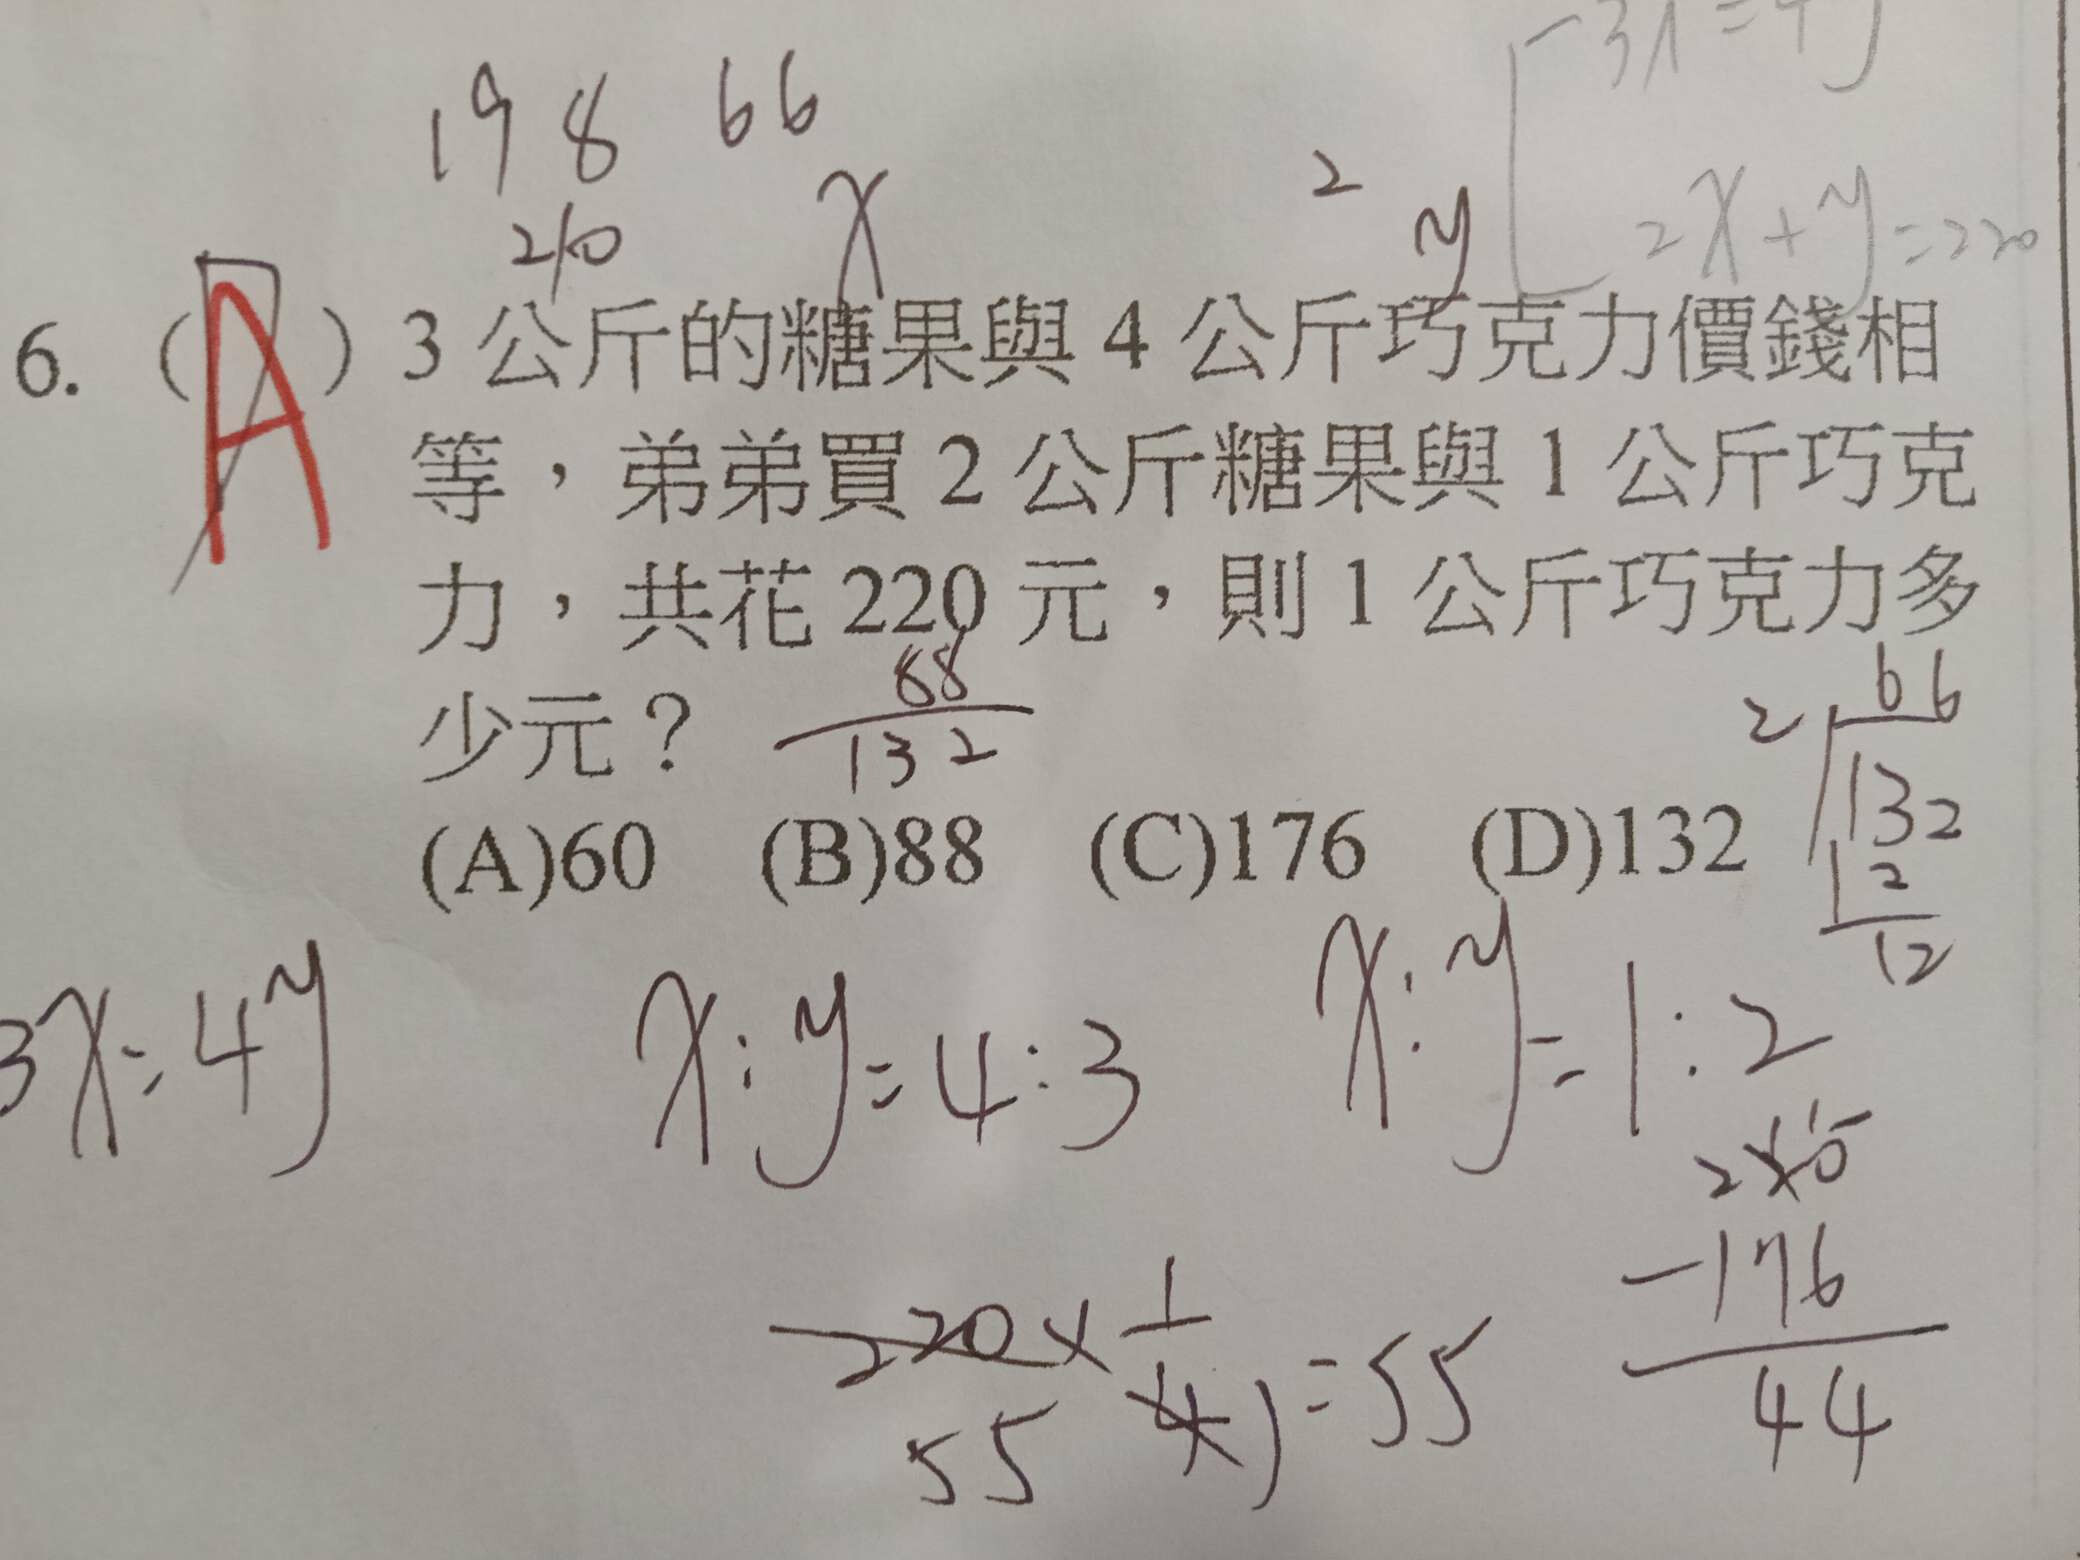 198 66
210 x 2 y
2x+y=220
6. (A) 3 公斤的糖果與 4 公斤巧克力價錢相
等，弟弟買 2 公斤糖果與 1 公斤巧克
力，共花 220 元，則 1 公斤巧克力多
少元？
88
132
(A)60 (B)88 (C)176 (D)132
66
2 132
12
12
3x=4y x:y=4:3 x:y=1:2
220×1/4=55
55
-176
44